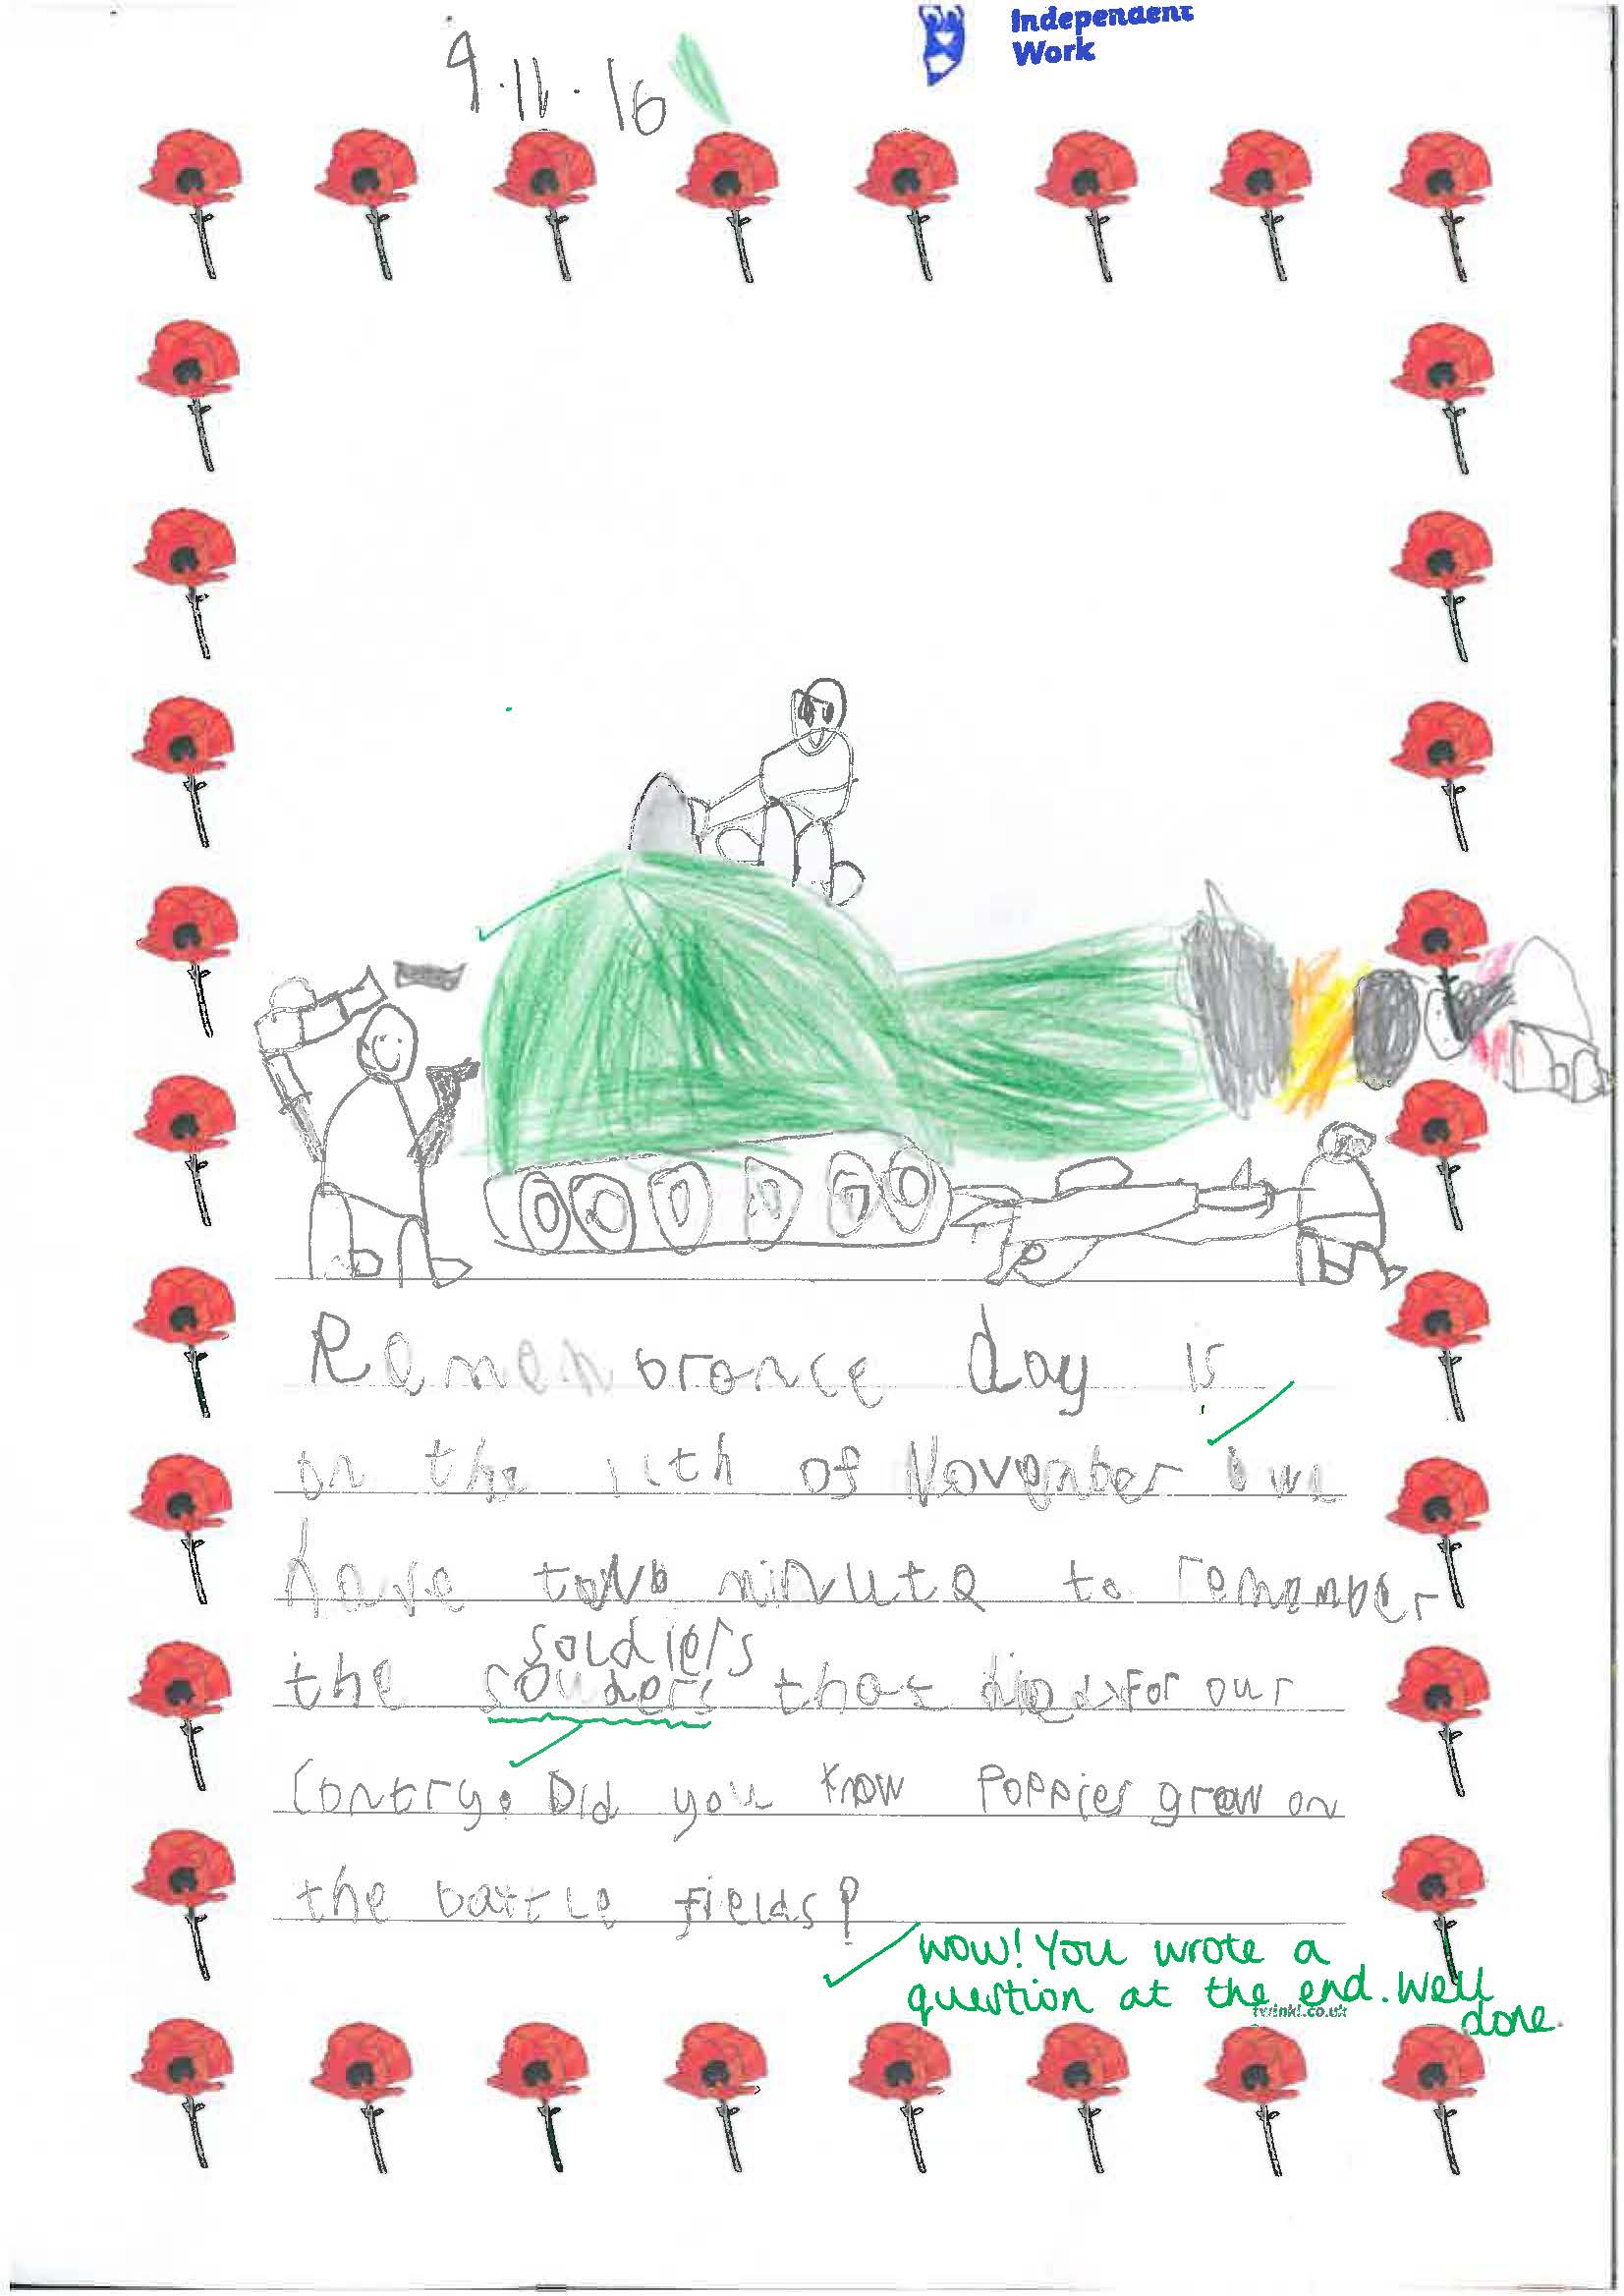 Independent
Work
9.11.16
Remenbrance day is
on the 11th of November we
have two minute to remember
soldiers
the souders that died for our
Contry. Did you know Poppies grow on
the battle fields?
wow! You wrote a
question at the end. Well
done.
twinkl.co.uk